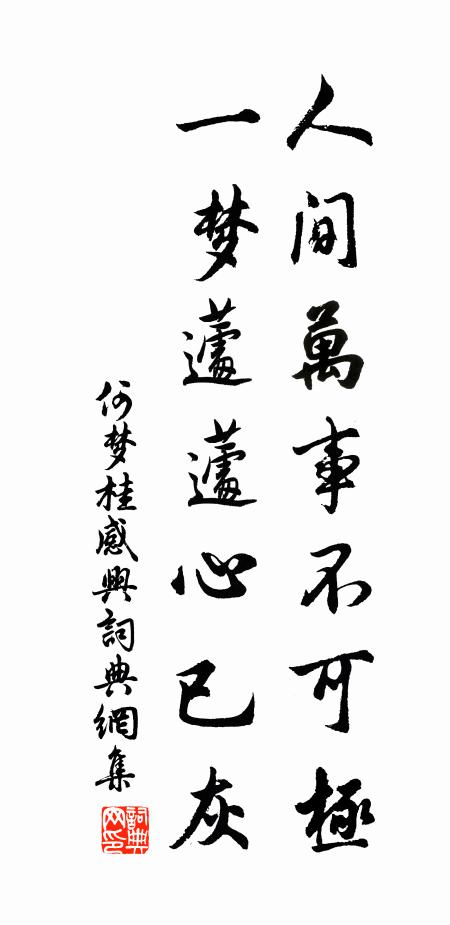 人間萬事不可極
一梦蘧蘧心已灰
何梦桂感興詞典網集
詞典网印